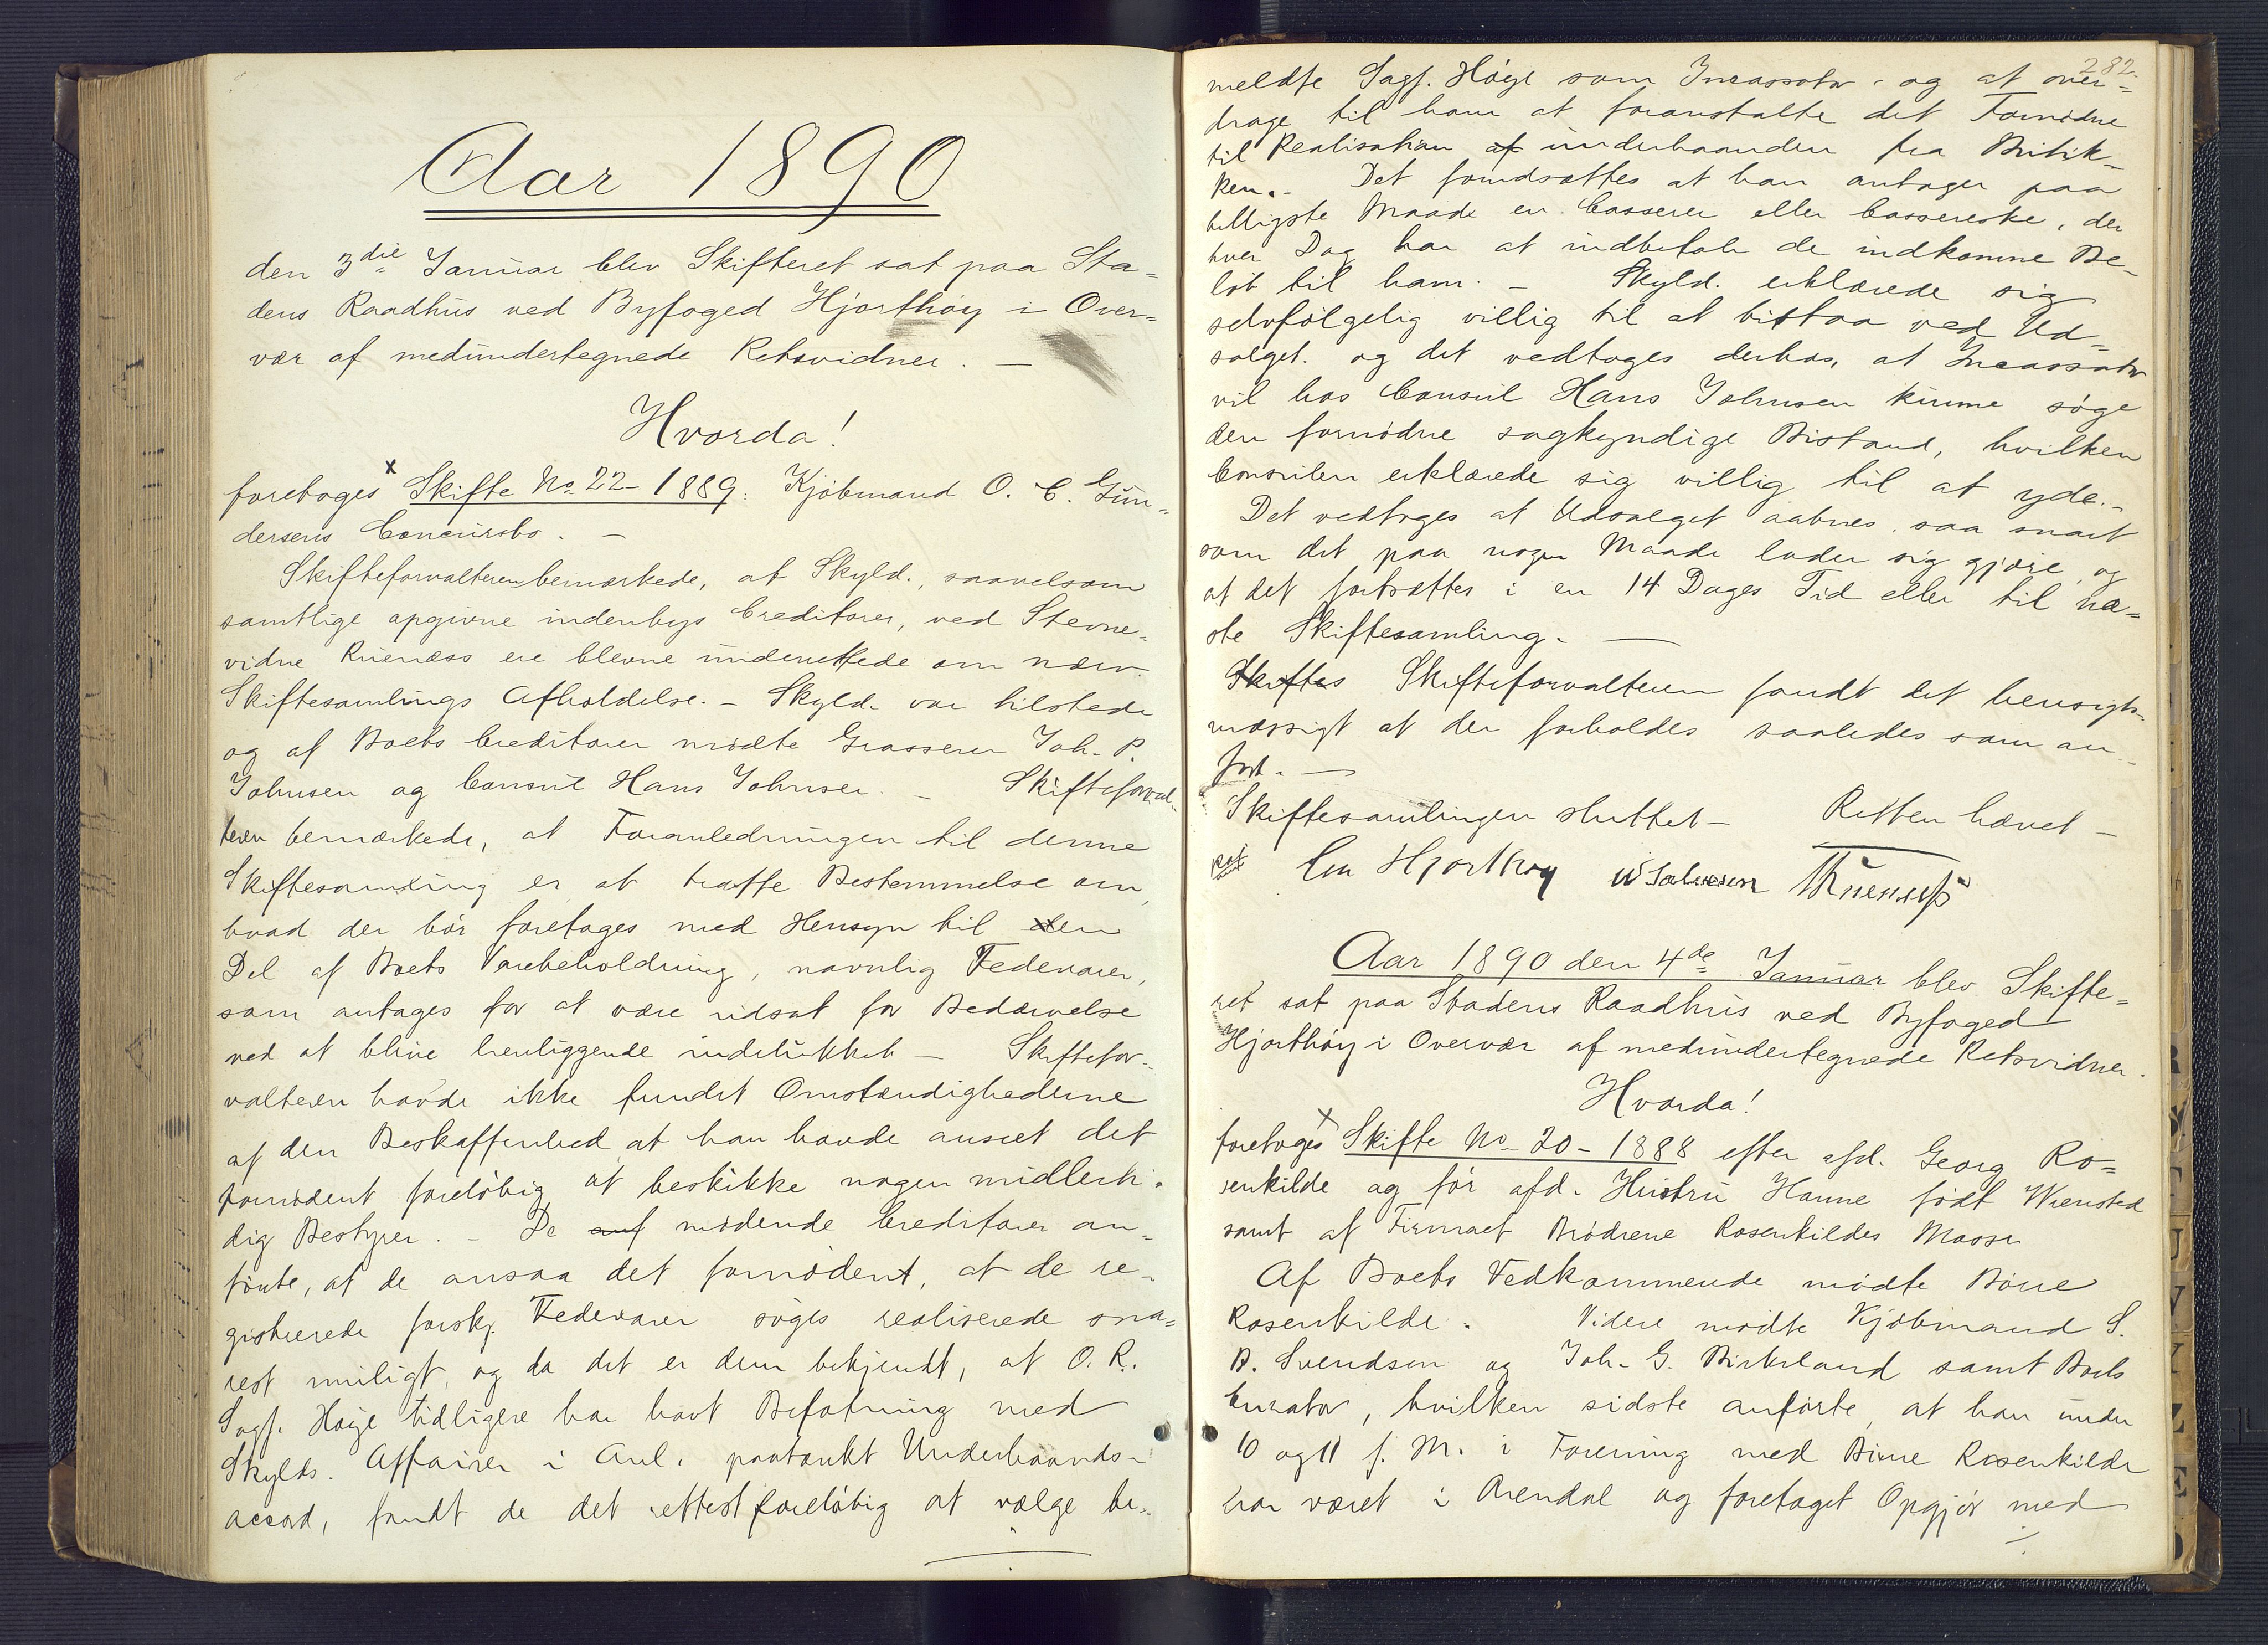 Aar 1890
den 3die Januar blev Skifteret sat paa Sta=
dens Raadhus ved Byfoged Hjorthøy i Over=
vær af medundertegnede Retsvidner. —
Hvorda!
foretoges x Skifte No 22 - 1889: Kjøbmand O. C. Gun=
dersens Concursbo. —
Skifteforvalteren bemærkede, at Skyld., saavelsom
samtlige opgivne indenbys Creditorer, ved Stevne-
vidne Ruenæss ere blevne underrettede om nærv.
Skiftesamlings Afholdelse. — Skyld. var tilstede
og af Boets Creditorer mødte Grosserer Joh. P.
Johnsen og Consul Hans Johnsen. — Skifteforval-
teren bemærkede, at Foranledningen til denne
Skiftesamling er at træffe Bestemmelse om,
hvad der bør foretages med Hensyn til den
Del af Boets Varebeholdning, navnlig Fedevarer,
som antages for at være udsat for Bedærvelse
ved at blive henliggende indelukket — Skiftefor-
valteren havde ikke fundet Omstændighederne
af den Beskaffenhed at han havde anseet det
fornødent foreløbig at beskikke nogen midlerti-
dig Bestyrer. — De mødende Creditorer an-
førte, at de ansaa det fornødent, at de re-
gistrerede forskj. Fedevarer søges realiserede sna=
rest muligt, og da det er dem bekjendt, at O. R.
Sagf. Høye tidligere har havt Befatning med
Skylds. Affairer i Anl. paatænkt Underhaands-
accord, fandt de det rettest foreløbig at vælge be-
282.
meldte Sagf. Høye som Incassator og at over=
drage til ham at foranstalte det Fornødne
til Realisation af underhaanden fra Butik-
ken. — Det forudsættes at han antager paa
billigste Maade en Casserer eller Cassererske, der
hver Dag har at indbetale de indkomne Be-
løb til ham. — Skyld. erklærede sig
selvfølgelig villig til at bistaa ved Ud-
salget. og det vedtoges derhos, at Incassator
vil hos Consul Hans Johnsen kunne søge
den fornødne sagkyndige Bistand, hvilken
Consulen erklærede sig villig til at yde. —
Det vedtoges at Udsalget aabnes saa snart
som det paa nogen Maade lader sig gjøre, og
at det fortsættes i en 14 Dages Tid eller til næ=
ste Skiftesamling. —
Skiftes Skifteforvalteren fandt det hensigts-
mæssigt at der forholdes saaledes som an-
ført. —
Skiftesamlingen sluttet — Retten hævet —
Hjorthøy W Salvesen Ruenæss
Aar 1890 den 4de Januar blev Skifte=
ret sat paa Stadens Raadhus ved Byfoged
Hjorthøy i Overvær af medundertegnede Retsvidner.
Hvorda!
foretoges x Skifte No 20 - 1888 efter afd. Georg Ro=
senkilde og før afd. Hustru Hanne født Wiensted
samt af Firmaet Brødrene Rosenkildes Masse
Af Boets Vedkommende mødte Børre
Rosenkilde. Videre mødte Kjøbmand S.
B. Svendsen og Joh. G. Birkeland samt Boets
Curator, hvilken sidste anførte, at han under
10 og 11 f. M. i Forening med Børre Rosenkilde
har været i Arendal og foretaget Opgjør med